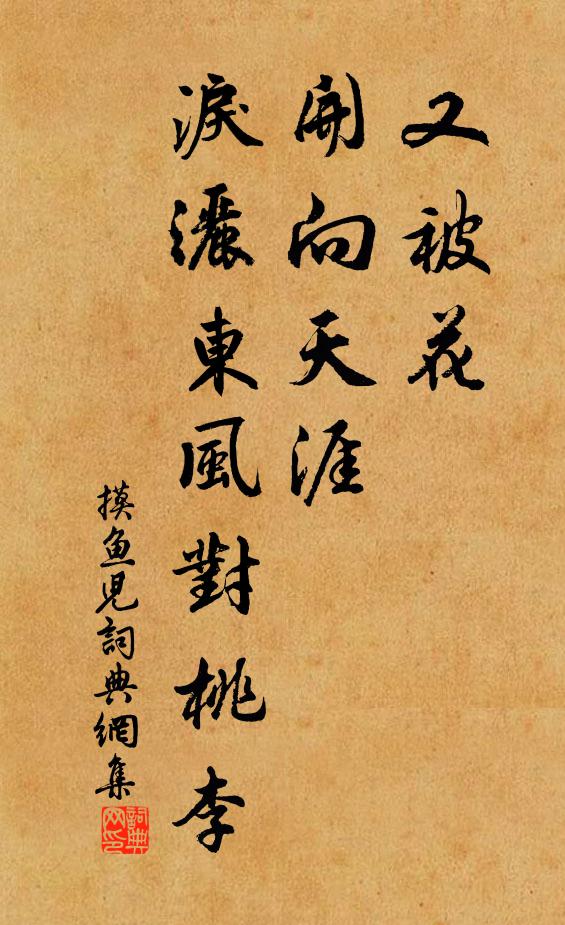 又被花
開向天涯
淚灑東風對桃李
摸魚兒詞典網集
詞典網印